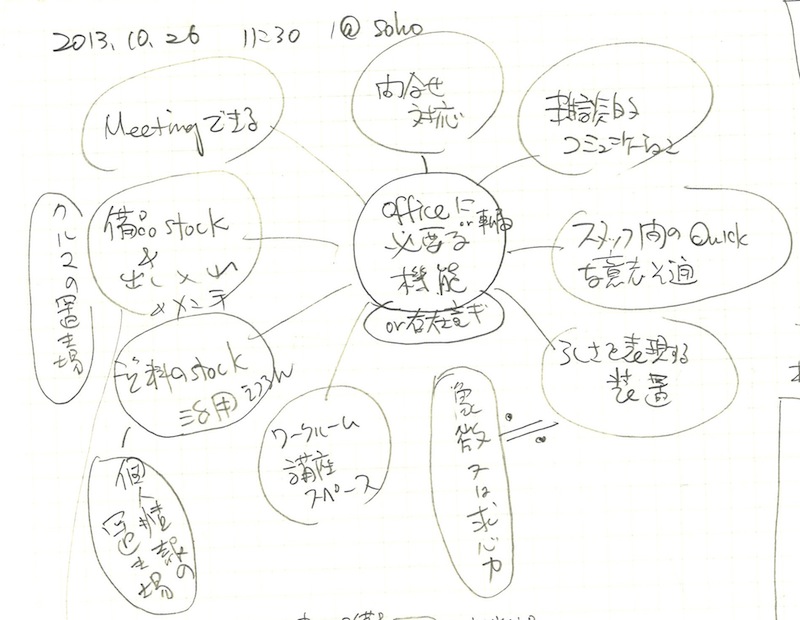 2013.10.26 11:30 @ soho
Meetingできる
問合せ
対応
雑談的な
コミュニケーション
officeに
or 事務
必要な
機能
or 存在意義
備品 stock
&
出し入れ
クルマの置き場
スタッフ間のQuick
な意志疎通
らしさを表現する
装置
資料のstock
活用
個人情報の
置き場
ワークルーム
講座
スペース
象徴又は求心力